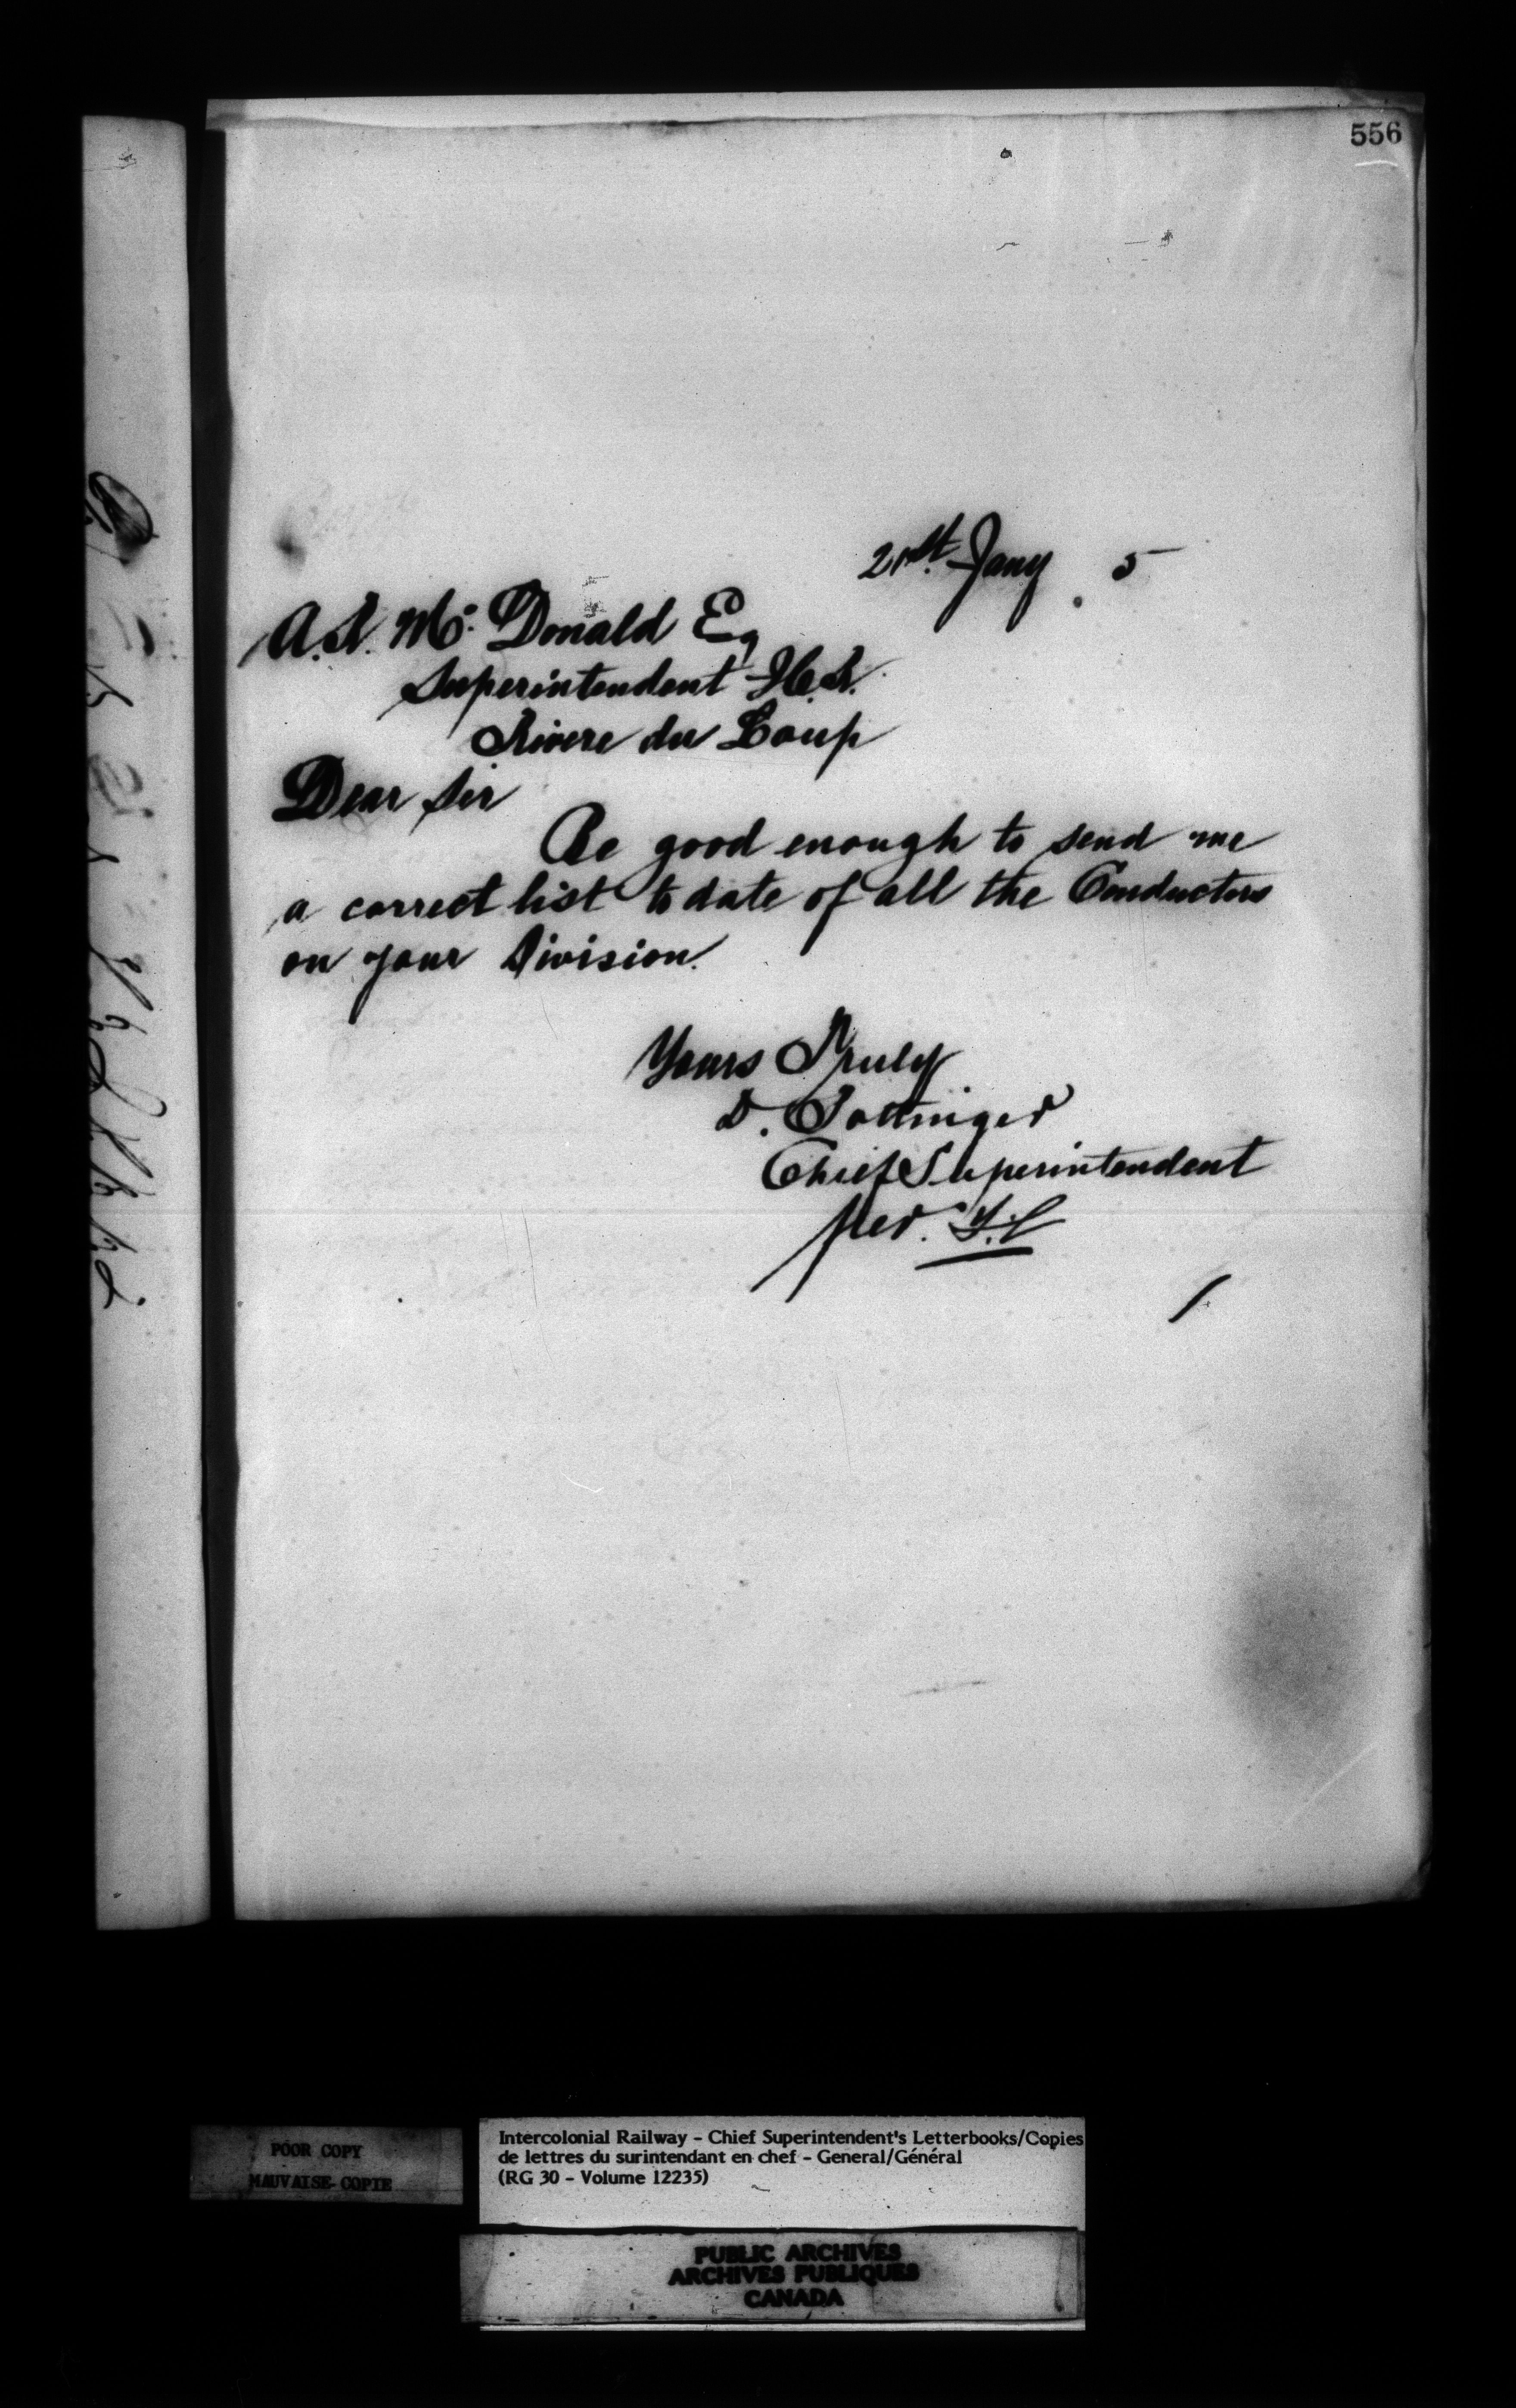 556
21st. Jany . 5
A.R. Mc. Donald Eq
Superintendent
Rivere du Loup
Dear Sir
Be good enough to send me
a correct list to date of all the Conductors
on your Division.
Yours Truly
D. Pottinger
Chief Superintendent
Per.
POOR COPY
MAUVAISE COPIE
Intercolonial Railway - Chief Superintendent's Letterbooks/Copies
de lettres du surintendant en chef - General/Général
(RG 30 - Volume 12235)
PUBLIC ARCHIVES
ARCHIVES PUBLIQUES
CANADA